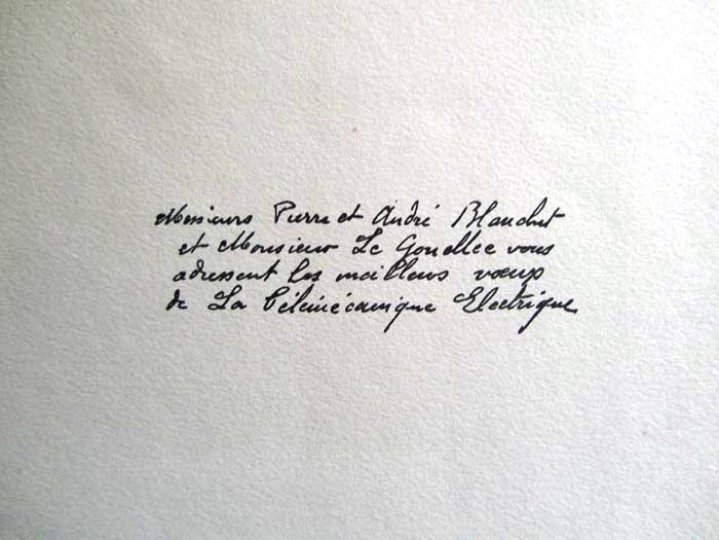 Messieurs Pierre et André Blanchet
et Monsieur Le Gouellec vous
adressent les meilleurs vœux
de La Télémécanique Electrique